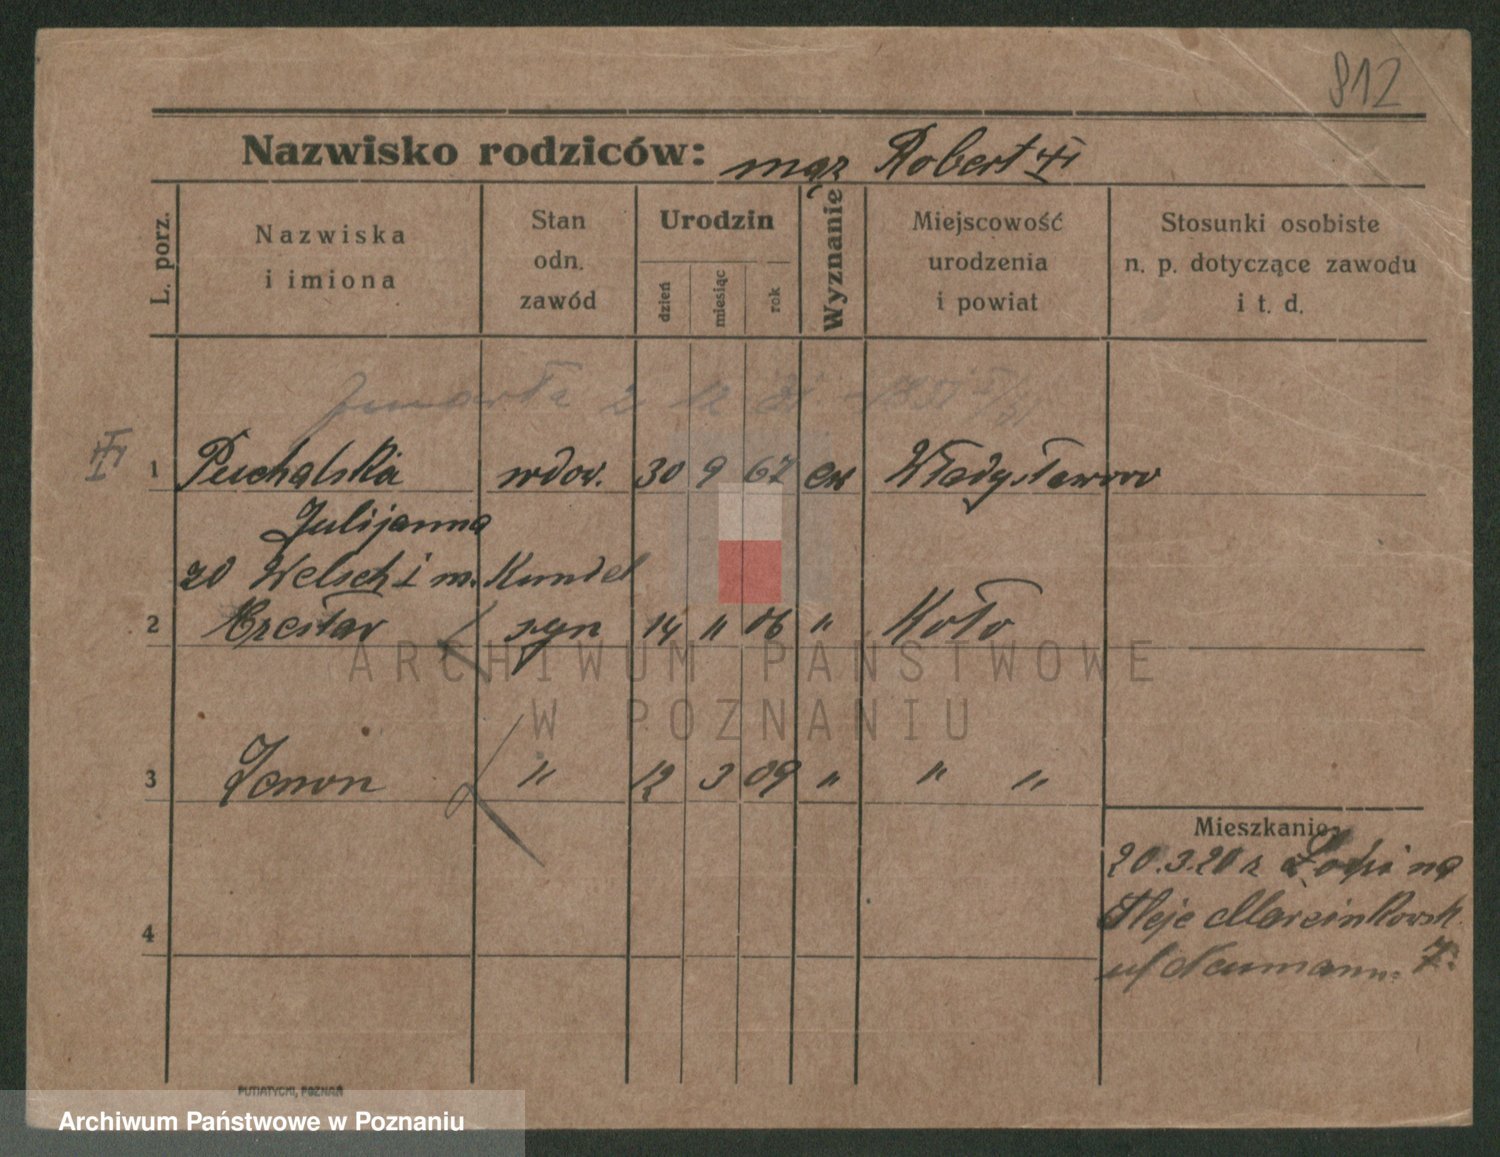 812
Nazwisko rodziców: mąż Robert
L. porz.
Nazwiska
i imiona
Stan
odn.
zawód
Urodzin
dzień
miesiąc
rok
Wyznanie
Miejscowość
urodzenia
i powiat
Stosunki osobiste
n. p. dotyczące zawodu
i t. d.
Zmarła 2 12 31
1 Puchalska wdow. 30 9 67 ew Władysławowo
Julijanna
zd Welsch i m. Kundel
2 syn 14 " 06 " Koło
3 Zenon " 12 3 09 " " "
4
Mieszkanie:
20.3.20 z Łodzi na
Aleje Marcinkowsk.
u/ Neumann. 7.
PUTIATYCKI, POZNAŃ
ARCHIWUM PAŃSTWOWE
W POZNANIU
Archiwum Państwowe w Poznaniu